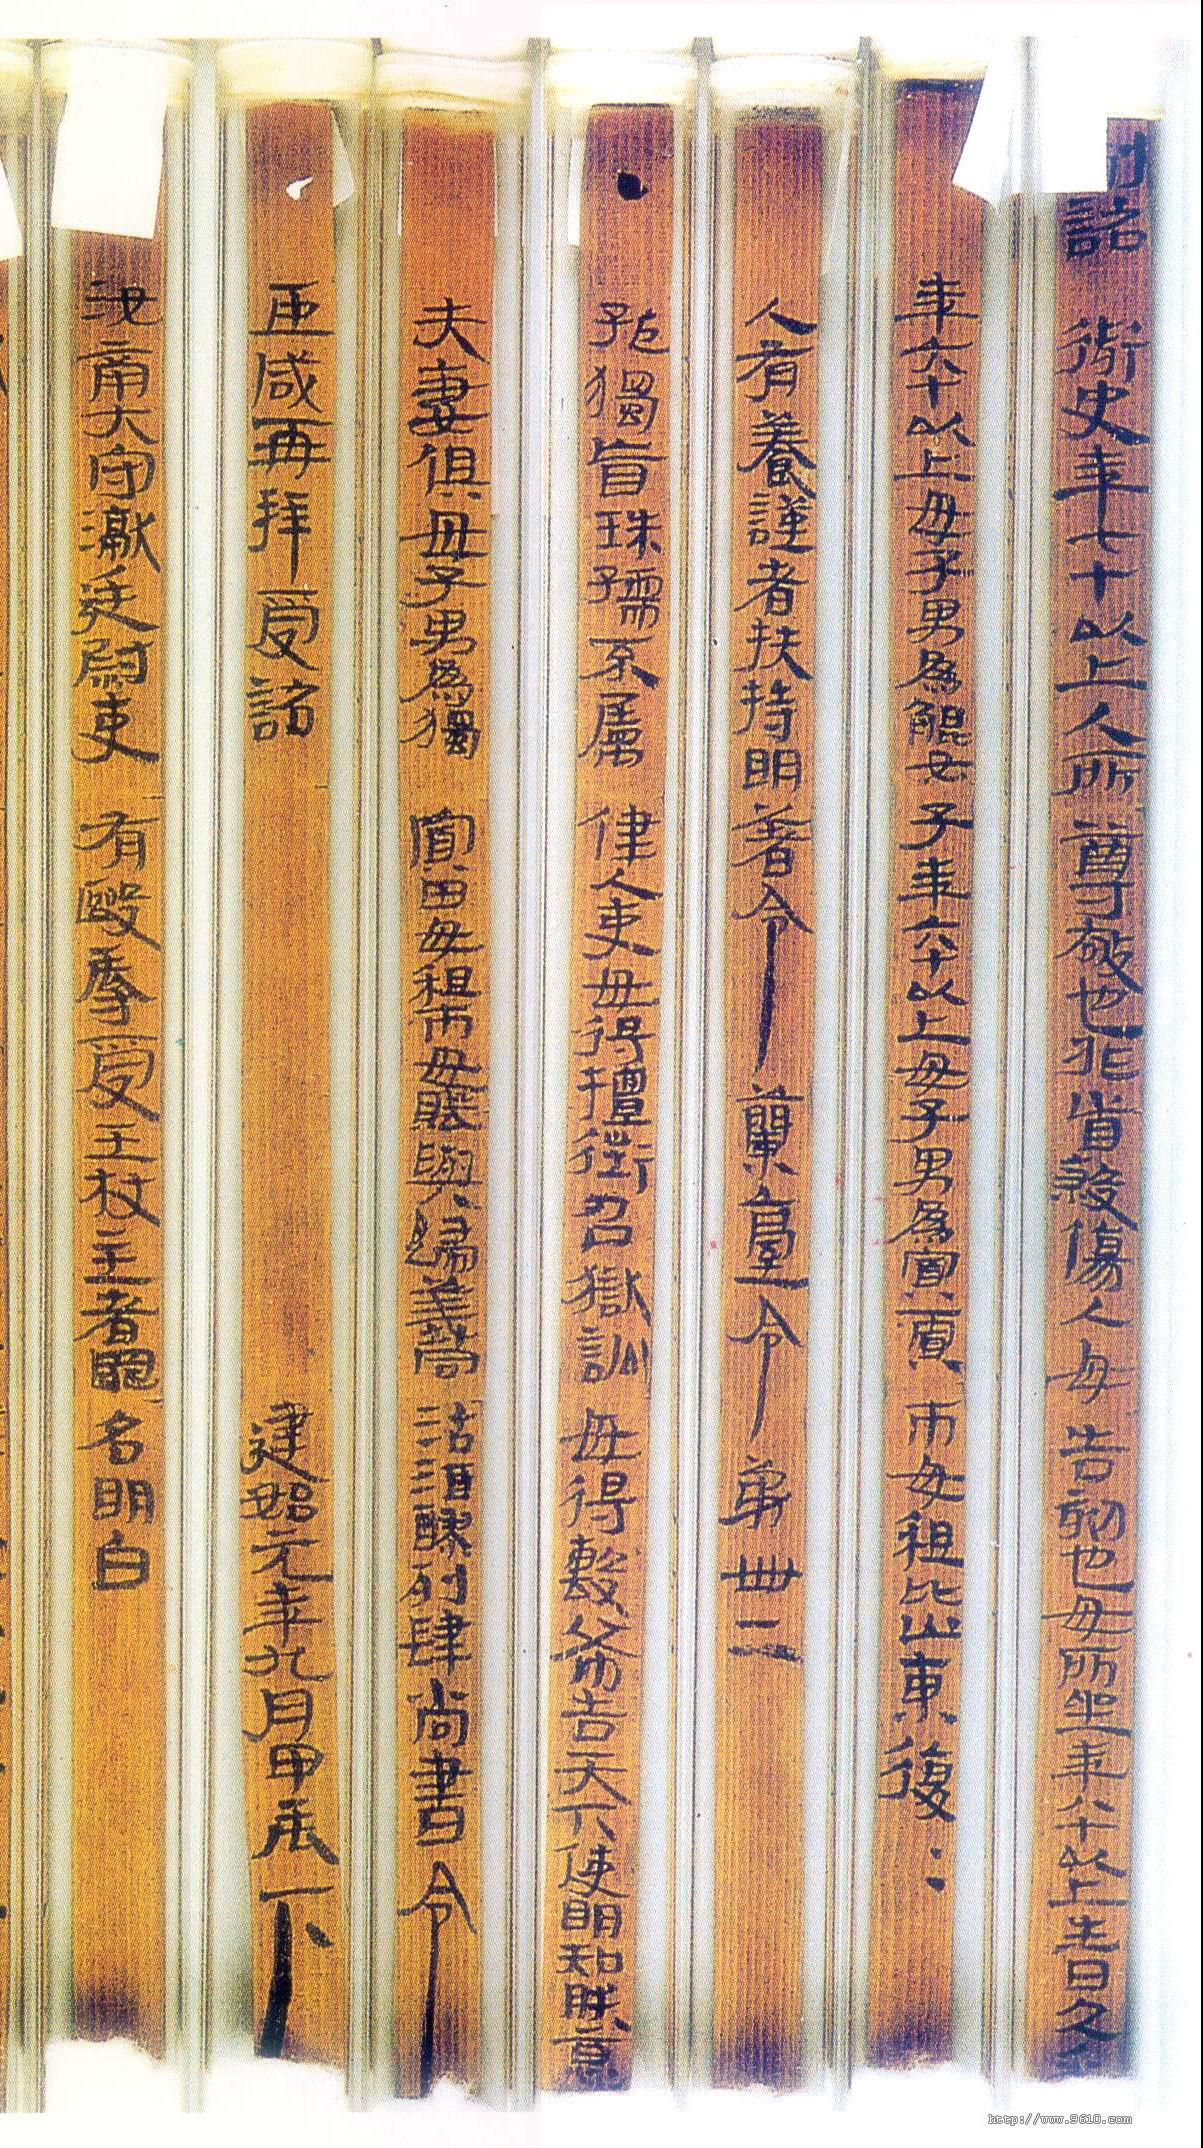 制詔御史年七十以上人所尊敬也非首殺傷人毋告劾也毋所坐年八十以上生日久
年六十以上毋子男為鯤女子年六十以上毋子男為寡賈市毋租比山東復:
人有養謹者扶持明著令蘭臺令第卌二
●孤獨盲珠孺不屬律人吏毋得擅徵召獄訟毋得毄布告天下使明知朕意
夫妻俱毋子男為獨寡田毋租市毋賦與歸義同沽酒醪列肆尚書令
臣咸再拜受詔 建始元年九月甲辰下
汝南大守讞廷尉吏有毆辱受王杖主者罪名明白
http://www.9610.com